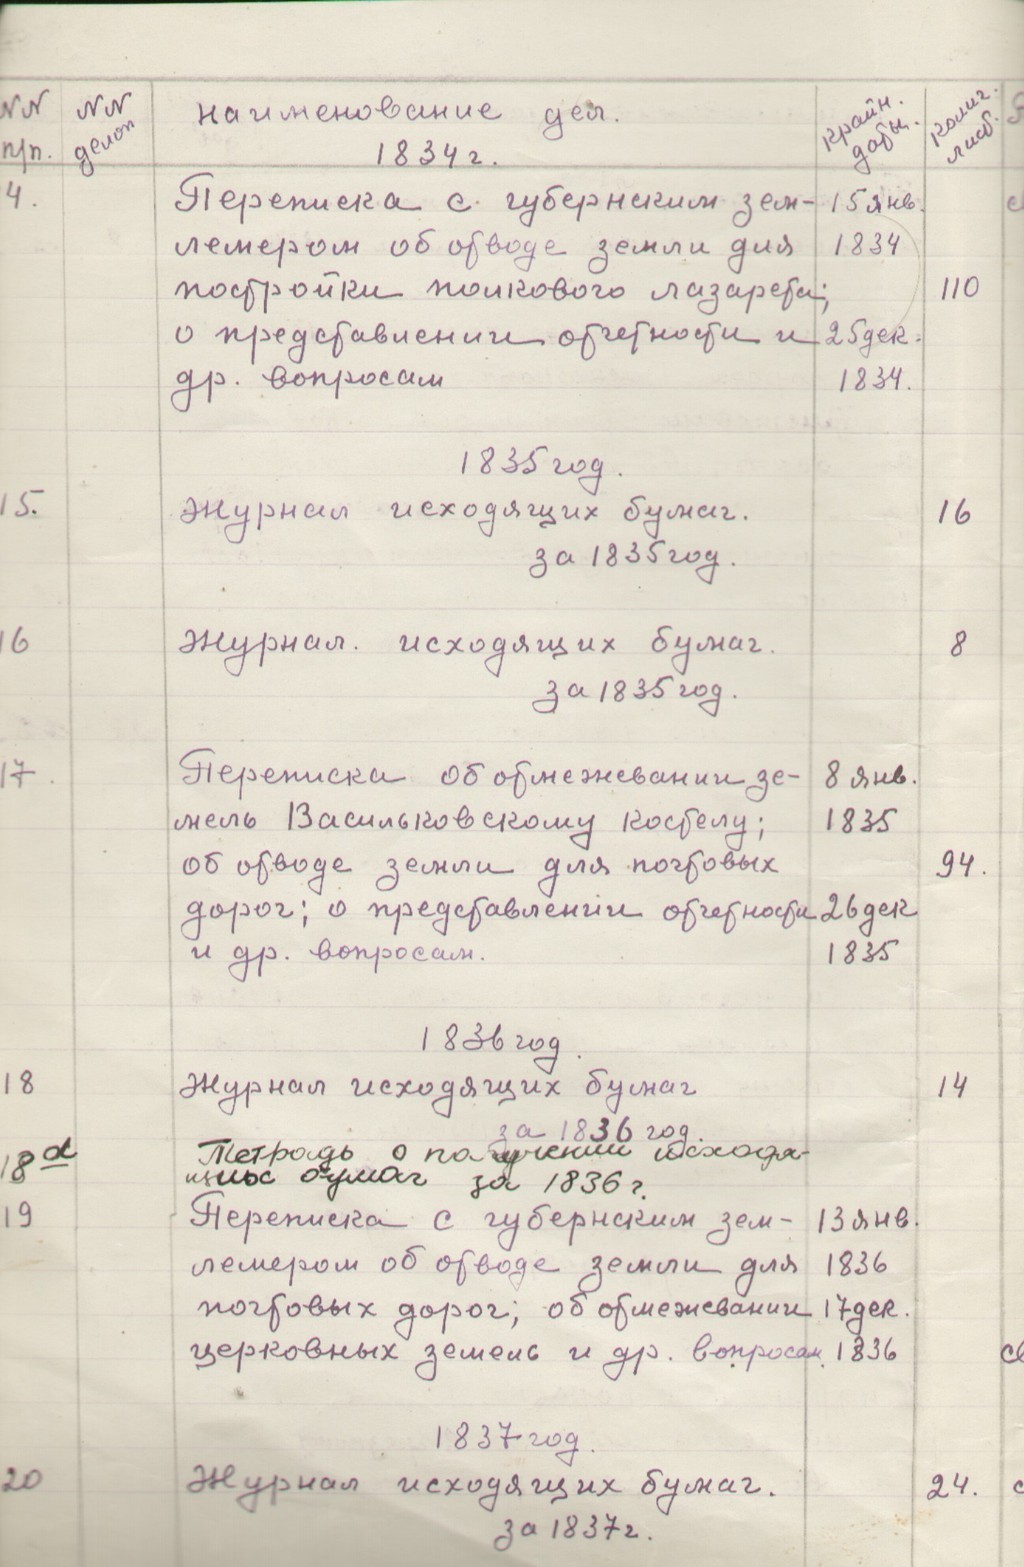 NN NN наименование дел. крайн. колич.
п/п. делоп 1834 г. даты. лист.
4. Переписка с губернским зем- 15 янв.
лемером об отводе земли для 1834
постройки полкового лазарета; 110
о представлении отчетности и 25 дек.
др. вопросам 1834.
1835 год.
15. Журнал исходящих бумаг. 16
за 1835 год.
16 Журнал. исходящих бумаг. 8
за 1835 год.
17. Переписка об отмежевании зе- 8 янв.
мель Васильковскому костелу; 1835
об отводе земли для почтовых 94.
дорог; о представлении отчетности 26 дек
и др. вопросам. 1835
1836 год.
18 Журнал исходящих бумаг 14
за 1836 год.
18а Тетрадь о получении исходя-
щих бумаг за 1836 г.
19 Переписка с губернским зем- 13 янв.
лемером об отводе земли для 1836
почтовых дорог; об отмежевании 17 дек.
церковных земель и др. вопросам. 1836
1837 год.
20 Журнал исходящих бумаг. 24.
за 1837 г.